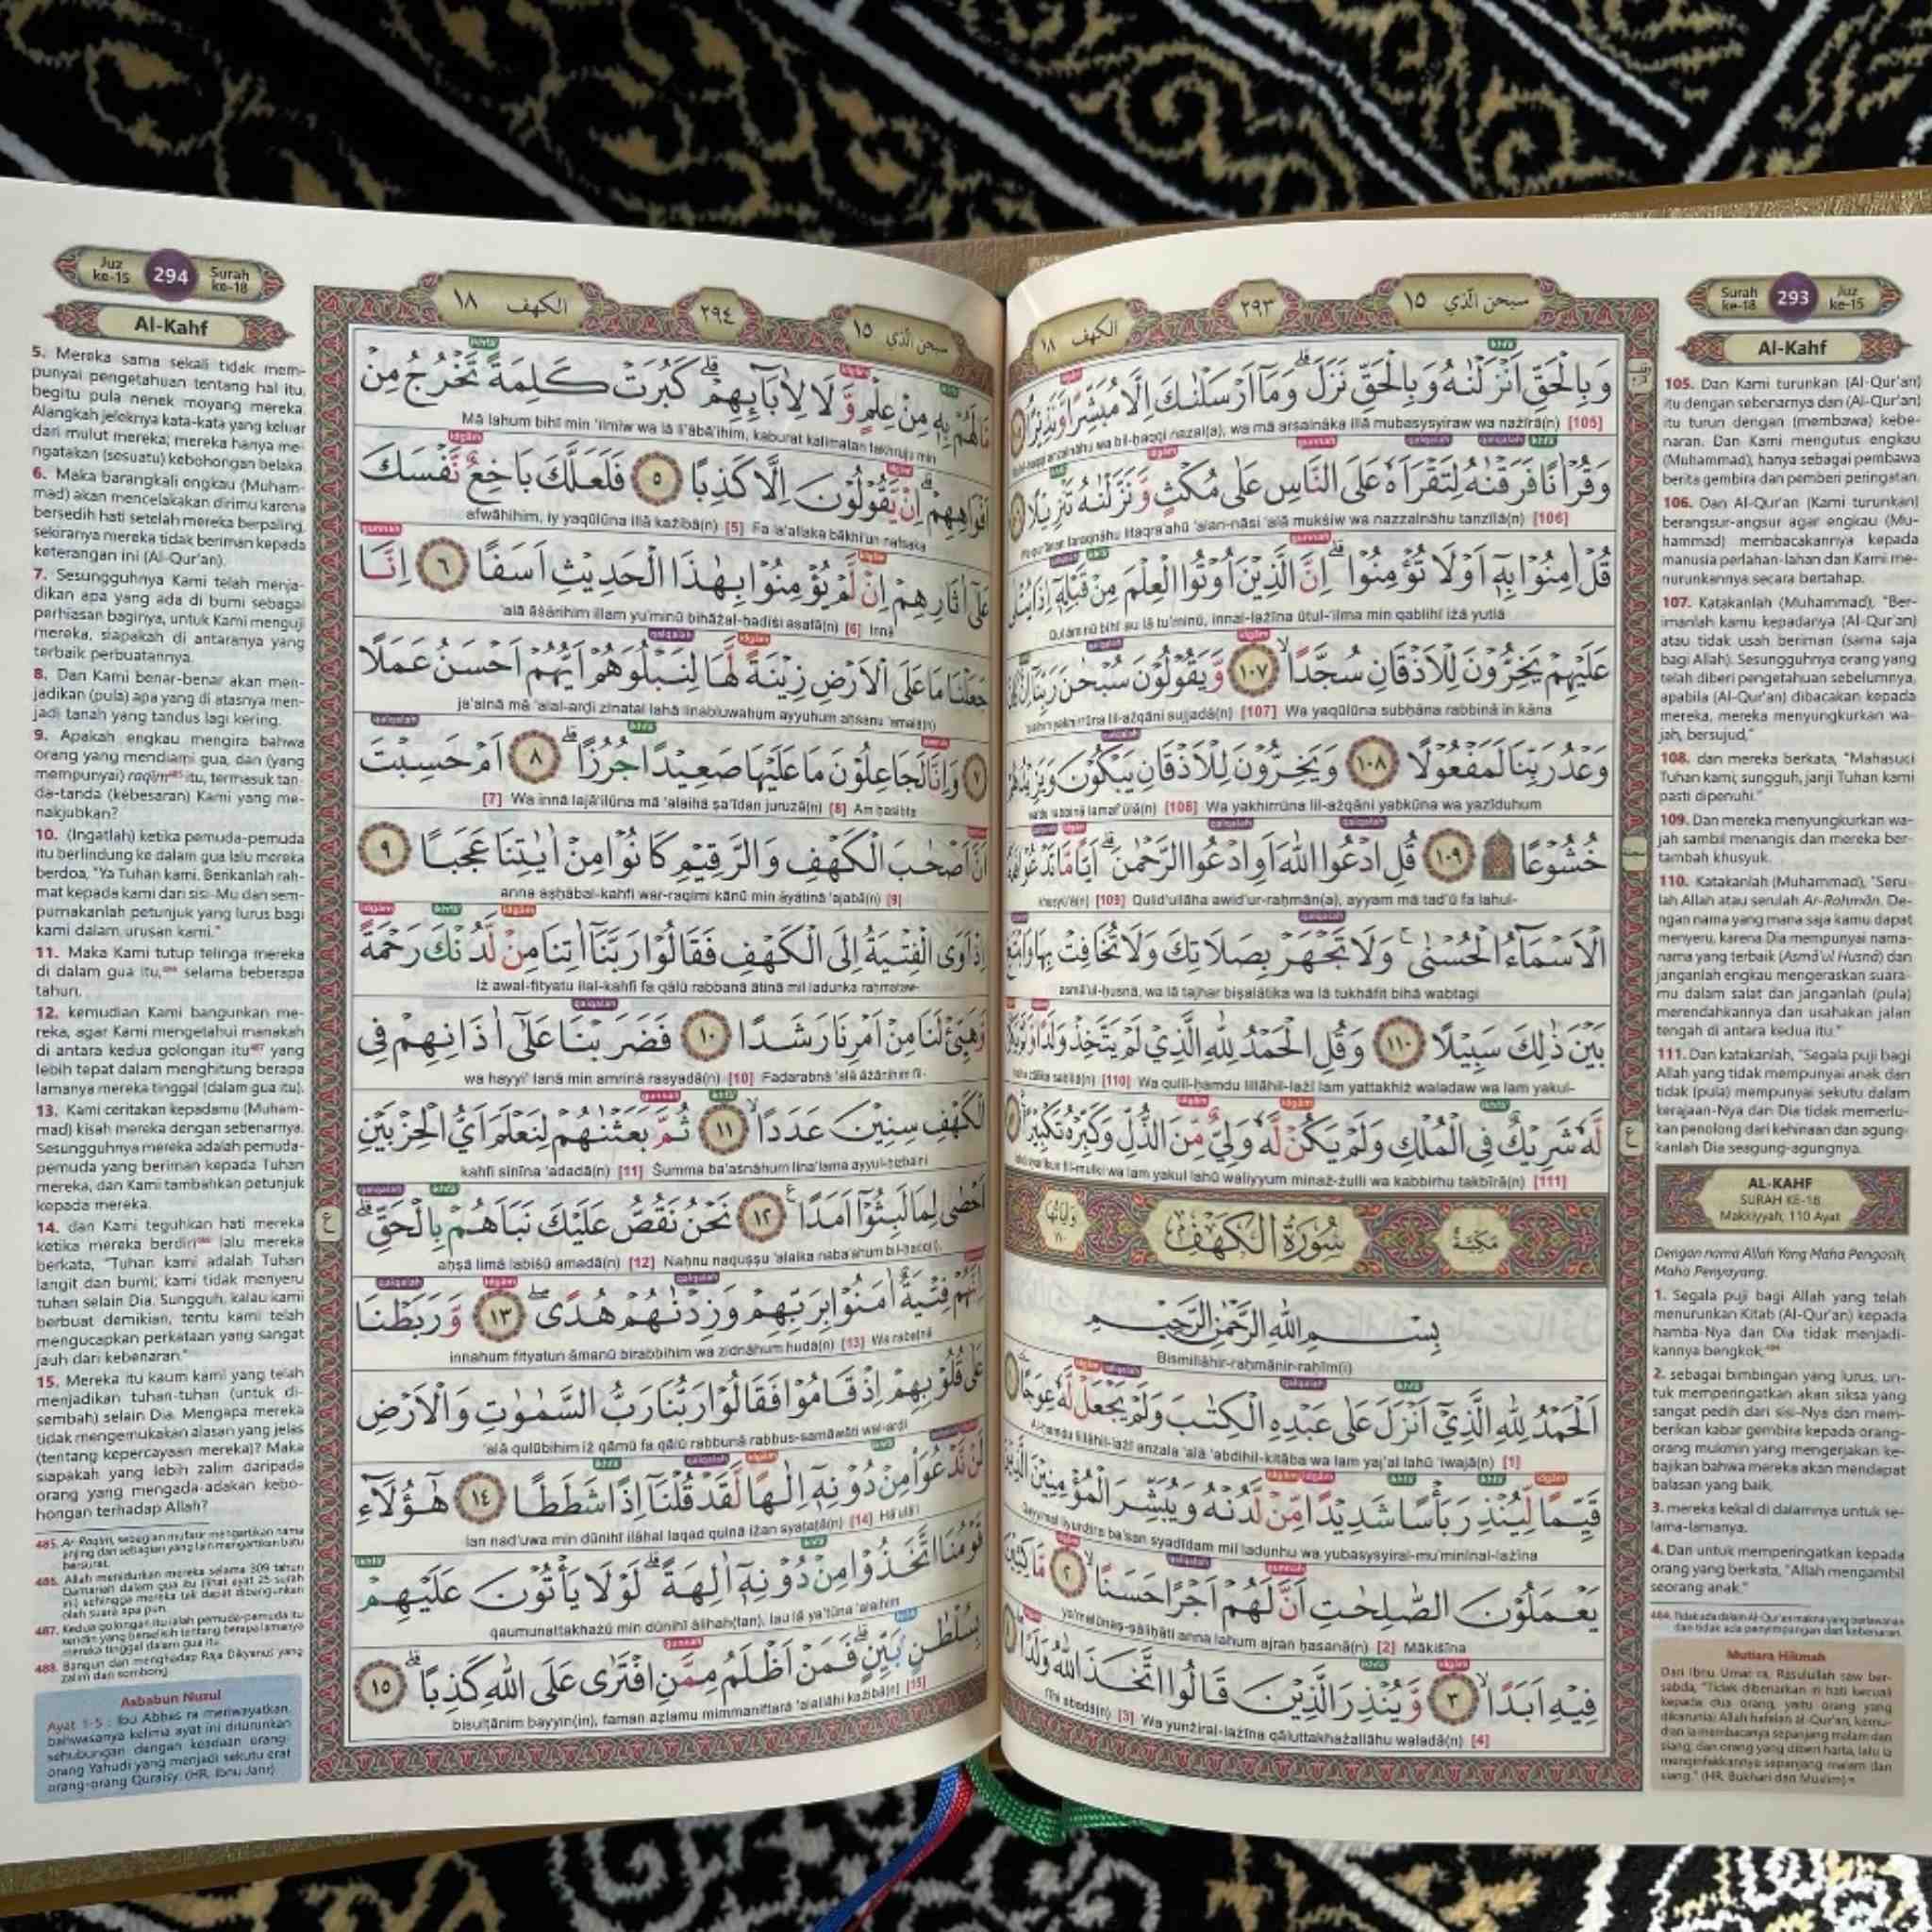 Surah ke-18 293 Juz ke-15
Al-Kahf
سبحن الّذي ١٥
٢٩٣
الكهف ١٨
وَبِالْحَقِّ اَنْزَلْنٰهُ وَبِالْحَقِّ نَزَلَۗ وَمَآ اَرْسَلْنٰكَ اِلَّا مُبَشِّرًا وَّنَذِيْرًا
wa bil-ḥaqqi nazal(a), wa mā arsalnāka illā mubasysyiraw wa nażīrā(n) [105]
وَقُرْاٰنًا فَرَقْنٰهُ لِتَقْرَاَهٗ عَلَى النَّاسِ عَلٰى مُكْثٍ وَّنَزَّلْنٰهُ تَنْزِيْلًا
faraqnāhu litaqra'ahū 'alan-nāsi 'alā mukṡiw wa nazzalnāhu tanzīlā(n) [106]
قُلْ اٰمِنُوْا بِهٖٓ اَوْ لَا تُؤْمِنُوْاۗ اِنَّ الَّذِيْنَ اُوْتُوا الْعِلْمَ مِنْ قَبْلِهٖٓ اِذَا يُتْلٰى
Qul āminū bihī au lā tu'minū, innal-lażīna ūtul-'ilma min qablihī iżā yutlā
عَلَيْهِمْ يَخِرُّوْنَ لِلْاَذْقَانِ سُجَّدًاۙ ١٠٧ وَّيَقُوْلُوْنَ سُبْحٰنَ رَبِّنَآ
lil-ażqāni sujjadā(n) [107] Wa yaqūlūna subḥāna rabbinā in kāna
وَعْدُ رَبِّنَا لَمَفْعُوْلًا ١٠٨ وَيَخِرُّوْنَ لِلْاَذْقَانِ يَبْكُوْنَ وَيَزِيْدُهُمْ
[108] Wa yakhirrūna lil-ażqāni yabkūna wa yazīduhum
خُشُوْعًا ١٠٩ قُلِ ادْعُوا اللّٰهَ اَوِ ادْعُوا الرَّحْمٰنَۗ اَيًّا مَّا تَدْعُوْا فَلَهُ
[109] Qulid'ullāha awid'ur-raḥmān(a), ayyam mā tad'ū fa lahul-
الْاَسْمَاۤءُ الْحُسْنٰىۚ وَلَا تَجْهَرْ بِصَلَاتِكَ وَلَا تُخَافِتْ بِهَا وَابْتَغِ
asmā'ul-ḥusnā, wa lā tajhar biṣalātika wa lā tukhāfit bihā wabtagi
بَيْنَ ذٰلِكَ سَبِيْلًا ١١٠ وَقُلِ الْحَمْدُ لِلّٰهِ الَّذِيْ لَمْ يَتَّخِذْ وَلَدًا وَّلَمْ يَكُنْ
[110] Wa qulil-ḥamdu lillāhil-lażī lam yattakhiż waladaw wa lam yakul-
لَّهٗ شَرِيْكٌ فِى الْمُلْكِ وَلَمْ يَكُنْ لَّهٗ وَلِيٌّ مِّنَ الذُّلِّ وَكَبِّرْهُ تَكْبِيْرًا
fil-mulki wa lam yakul lahū waliyyum minaż-żulli wa kabbirhu takbīrā(n) [111]
مَكِّيَّةٌ
سُوْرَةُ الْكَهْفِ
بِسْمِ اللّٰهِ الرَّحْمٰنِ الرَّحِيْمِ
Bismillāhir-raḥmānir-raḥīm(i)
اَلْحَمْدُ لِلّٰهِ الَّذِيْٓ اَنْزَلَ عَلٰى عَبْدِهِ الْكِتٰبَ وَلَمْ يَجْعَلْ لَّهٗ عِوَجًا
lillāhil-lażī anzala 'alā 'abdihil-kitāba wa lam yaj'al lahū 'iwajā(n) [1]
قَيِّمًا لِّيُنْذِرَ بَأْسًا شَدِيْدًا مِّنْ لَّدُنْهُ وَيُبَشِّرَ الْمُؤْمِنِيْنَ الَّذِيْنَ
liyunżira ba'san syadīdam mil ladunhu wa yubasysyiral-mu'minīnal-lażīna
يَعْمَلُوْنَ الصّٰلِحٰتِ اَنَّ لَهُمْ اَجْرًا حَسَنًاۙ ٢ مَّاكِثِيْنَ
ya'malūnaṣ-ṣāliḥāti anna lahum ajran ḥasanā(n) [2] Mākiṡīna
فِيْهِ اَبَدًاۙ ٣ وَّيُنْذِرَ الَّذِيْنَ قَالُوا اتَّخَذَ اللّٰهُ وَلَدًا
fīhi abadā(n) [3] Wa yunżiral-lażīna qāluttakhażallāhu waladā(n) [4]
105. Dan Kami turunkan (Al-Qur'an)
itu dengan sebenarnya dan (Al-Qur'an)
itu turun dengan (membawa) kebe-
naran. Dan Kami mengutus engkau
(Muhammad), hanya sebagai pembawa
berita gembira dan pemberi peringatan.
106. Dan Al-Qur'an (Kami turunkan)
berangsur-angsur agar engkau (Mu-
hammad) membacakannya kepada
manusia perlahan-lahan dan Kami me-
nurunkannya secara bertahap.
107. Katakanlah (Muhammad), "Ber-
imanlah kamu kepadanya (Al-Qur'an)
atau tidak usah beriman (sama saja
bagi Allah). Sesungguhnya orang yang
telah diberi pengetahuan sebelumnya,
apabila (Al-Qur'an) dibacakan kepada
mereka, mereka menyungkurkan wa-
jah, bersujud,"
108. dan mereka berkata, "Mahasuci
Tuhan kami; sungguh, janji Tuhan kami
pasti dipenuhi."
109. Dan mereka menyungkurkan wa-
jah sambil menangis dan mereka ber-
tambah khusyuk.
110. Katakanlah (Muhammad), "Seru-
lah Allah atau serulah Ar-Rahmān. De-
ngan nama yang mana saja kamu dapat
menyeru, karena Dia mempunyai nama-
nama yang terbaik (Asmā'ul Husnā) dan
janganlah engkau mengeraskan suara-
mu dalam salat dan janganlah (pula)
merendahkannya dan usahakan jalan
tengah di antara kedua itu."
111. Dan katakanlah, "Segala puji bagi
Allah yang tidak mempunyai anak dan
tidak (pula) mempunyai sekutu dalam
kerajaan-Nya dan Dia tidak memerlu-
kan penolong dari kehinaan dan agung-
kanlah Dia seagung-agungnya.
AL-KAHF
SURAH KE-18
Makkiyyah, 110 Ayat
Dengan nama Allah Yang Maha Pengasih,
Maha Penyayang.
1. Segala puji bagi Allah yang telah
menurunkan Kitab (Al-Qur'an) kepada
hamba-Nya dan Dia tidak menjadi-
kannya bengkok;
2. sebagai bimbingan yang lurus, un-
tuk memperingatkan akan siksa yang
sangat pedih dari sisi-Nya dan mem-
berikan kabar gembira kepada orang-
orang mukmin yang mengerjakan ke-
bajikan bahwa mereka akan mendapat
balasan yang baik,
3. mereka kekal di dalamnya untuk se-
lama-lamanya.
4. Dan untuk memperingatkan kepada
orang yang berkata, "Allah mengambil
seorang anak."
484. Tidak ada dalam Al-Qur'an makna yang berlawanan
dan tidak ada penyimpangan dari kebenaran.
Mutiara Hikmah
Dari Ibnu Umar ra, Rasulullah saw ber-
sabda, "Tidak dibenarkan iri hati kecuali
kepada dua orang, yaitu orang yang
dikaruniai Allah hafalan al-Qur'an, kemu-
dian ia membacanya sepanjang malam dan
siang; dan orang yang diberi harta, lalu ia
menginfakkannya sepanjang malam dan
siang." (HR. Bukhari dan Muslim)
Juz ke-15 294 Surah ke-18
Al-Kahf
سبحن الّذي ١٥
٢٩٤
الكهف ١٨
مَا لَهُمْ بِهٖ مِنْ عِلْمٍ وَّلَا لِاٰبَاۤىِٕهِمْۗ كَبُرَتْ كَلِمَةً تَخْرُجُ مِنْ
Mā lahum bihī min 'ilmiw wa lā li'ābā'ihim, kaburat kalimatan takhruju min
اَفْوَاهِهِمْۗ اِنْ يَّقُوْلُوْنَ اِلَّا كَذِبًا ٥ فَلَعَلَّكَ بَاخِعٌ نَّفْسَكَ
afwāhihim, iy yaqūlūna illā każibā(n) [5] Fa la'allaka bākhi'un nafsaka
عَلٰٓى اٰثَارِهِمْ اِنْ لَّمْ يُؤْمِنُوْا بِهٰذَا الْحَدِيْثِ اَسَفًا ٦ اِنَّا
'alā āṡārihim illam yu'minū bihāżal-ḥadīṡi asafā(n) [6] Innā
جَعَلْنَا مَا عَلَى الْاَرْضِ زِيْنَةً لَّهَا لِنَبْلُوَهُمْ اَيُّهُمْ اَحْسَنُ عَمَلًا
ja'alnā mā 'alal-arḍi zīnatal lahā linabluwahum ayyuhum aḥsanu 'amalā(n)
٧ وَاِنَّا لَجَاعِلُوْنَ مَا عَلَيْهَا صَعِيْدًا جُرُزًاۗ ٨ اَمْ حَسِبْتَ
[7] Wa innā lajā'ilūna mā 'alaihā ṣa'īdan juruzā(n) [8] Am ḥasibta
اَنَّ اَصْحٰبَ الْكَهْفِ وَالرَّقِيْمِ كَانُوْا مِنْ اٰيٰتِنَا عَجَبًا ٩
anna aṣḥābal-kahfi war-raqīmi kānū min āyātinā 'ajabā(n) [9]
اِذْ اَوَى الْفِتْيَةُ اِلَى الْكَهْفِ فَقَالُوْا رَبَّنَآ اٰتِنَا مِنْ لَّدُنْكَ رَحْمَةً
Iż awal-fityatu ilal-kahfi fa qālū rabbanā ātinā mil ladunka raḥmataw-
وَّهَيِّئْ لَنَا مِنْ اَمْرِنَا رَشَدًا ١٠ فَضَرَبْنَا عَلٰٓى اٰذَانِهِمْ فِى
wa hayyi' lanā min amrinā rasyadā(n) [10] Faḍarabnā 'alā āżānihim fil-
الْكَهْفِ سِنِيْنَ عَدَدًاۙ ١١ ثُمَّ بَعَثْنٰهُمْ لِنَعْلَمَ اَيُّ الْحِزْبَيْنِ
kahfi sinīna 'adadā(n) [11] Ṡumma ba'aṡnāhum lina'lama ayyul-ḥizbaini
اَحْصٰى لِمَا لَبِثُوْٓا اَمَدًا ١٢ نَحْنُ نَقُصُّ عَلَيْكَ نَبَاَهُمْ بِالْحَقِّۗ
aḥṣā limā labiṡū amadā(n) [12] Naḥnu naquṣṣu 'alaika naba'ahum bil-ḥaqq(i),
اِنَّهُمْ فِتْيَةٌ اٰمَنُوْا بِرَبِّهِمْ وَزِدْنٰهُمْ هُدًىۖ ١٣ وَّرَبَطْنَا
innahum fityatun āmanū birabbihim wa zidnāhum hudā(n) [13] Wa rabaṭnā
عَلٰى قُلُوْبِهِمْ اِذْ قَامُوْا فَقَالُوْا رَبُّنَا رَبُّ السَّمٰوٰتِ وَالْاَرْضِ
'alā qulūbihim iż qāmū fa qālū rabbunā rabbus-samāwāti wal-arḍi
لَنْ نَّدْعُوَا۟ مِنْ دُوْنِهٖٓ اِلٰهًا لَّقَدْ قُلْنَآ اِذًا شَطَطًا ١٤ هٰٓؤُلَاۤءِ
lan nad'uwa min dūnihī ilāhal laqad qulnā iżan syaṭaṭā(n) [14] Hā'ulā'i
قَوْمُنَا اتَّخَذُوْا مِنْ دُوْنِهٖٓ اٰلِهَةًۗ لَوْلَا يَأْتُوْنَ عَلَيْهِمْ
qaumunattakhażū min dūnihī ālihah(tan), lau lā ya'tūna 'alaihim
بِسُلْطٰنٍۢ بَيِّنٍۗ فَمَنْ اَظْلَمُ مِمَّنِ افْتَرٰى عَلَى اللّٰهِ كَذِبًاۗ ١٥
bisulṭānim bayyin(in), faman aẓlamu mimmaniftarā 'alallāhi każibā(n) [15]
5. Mereka sama sekali tidak mem-
punyai pengetahuan tentang hal itu,
begitu pula nenek moyang mereka.
Alangkah jeleknya kata-kata yang keluar
dari mulut mereka; mereka hanya me-
ngatakan (sesuatu) kebohongan belaka.
6. Maka barangkali engkau (Muham-
mad) akan mencelakakan dirimu karena
bersedih hati setelah mereka berpaling,
sekiranya mereka tidak beriman kepada
keterangan ini (Al-Qur'an).
7. Sesungguhnya Kami telah menja-
dikan apa yang ada di bumi sebagai
perhiasan baginya, untuk Kami menguji
mereka, siapakah di antaranya yang
terbaik perbuatannya.
8. Dan Kami benar-benar akan men-
jadikan (pula) apa yang di atasnya men-
jadi tanah yang tandus lagi kering.
9. Apakah engkau mengira bahwa
orang yang mendiami gua, dan (yang
mempunyai) raqīm485 itu, termasuk tan-
da-tanda (kebesaran) Kami yang me-
nakjubkan?
10. (Ingatlah) ketika pemuda-pemuda
itu berlindung ke dalam gua lalu mereka
berdoa, "Ya Tuhan kami. Berikanlah rah-
mat kepada kami dari sisi-Mu dan sem-
purnakanlah petunjuk yang lurus bagi
kami dalam urusan kami."
11. Maka Kami tutup telinga mereka
di dalam gua itu,486 selama beberapa
tahun.
12. kemudian Kami bangunkan me-
reka, agar Kami mengetahui manakah
di antara kedua golongan itu487 yang
lebih tepat dalam menghitung berapa
lamanya mereka tinggal (dalam gua itu).
13. Kami ceritakan kepadamu (Muham-
mad) kisah mereka dengan sebenarnya.
Sesungguhnya mereka adalah pemuda-
pemuda yang beriman kepada Tuhan
mereka, dan Kami tambahkan petunjuk
kepada mereka.
14. dan Kami teguhkan hati mereka
ketika mereka berdiri488 lalu mereka
berkata, "Tuhan kami adalah Tuhan
langit dan bumi; kami tidak menyeru
tuhan selain Dia. Sungguh, kalau kami
berbuat demikian, tentu kami telah
mengucapkan perkataan yang sangat
jauh dari kebenaran."
15. Mereka itu kaum kami yang telah
menjadikan tuhan-tuhan (untuk di-
sembah) selain Dia. Mengapa mereka
tidak mengemukakan alasan yang jelas
(tentang kepercayaan mereka)? Maka
siapakah yang lebih zalim daripada
orang yang mengada-adakan kebo-
hongan terhadap Allah?
485. Ar Raqīm, sebagian mufasir mengartikan nama
anjing dan sebagian yang lain mengartikan batu
bersurat.
486. Allah menidurkan mereka selama 309 tahun
Qamariah dalam gua itu (lihat ayat 25 surah
ini) sehingga mereka tak dapat dibangunkan
oleh suara apa pun.
487. Kedua golongan itu ialah pemuda-pemuda itu
sendiri yang berselisih tentang berapa lamanya
mereka tinggal dalam gua itu.
488. Bangun dan menghadap Raja Dikyanus yang
zalim dan sombong
Asbabun Nuzul
Ayat 1-5 : Ibu Abbas ra meriwayatkan,
bahwasanya kelima ayat ini diturunkan
sehubungan dengan keadaan orang-
orang Yahudi yang menjadi sekutu erat
orang-orang Quraisy. (HR. Ibnu Jarir)